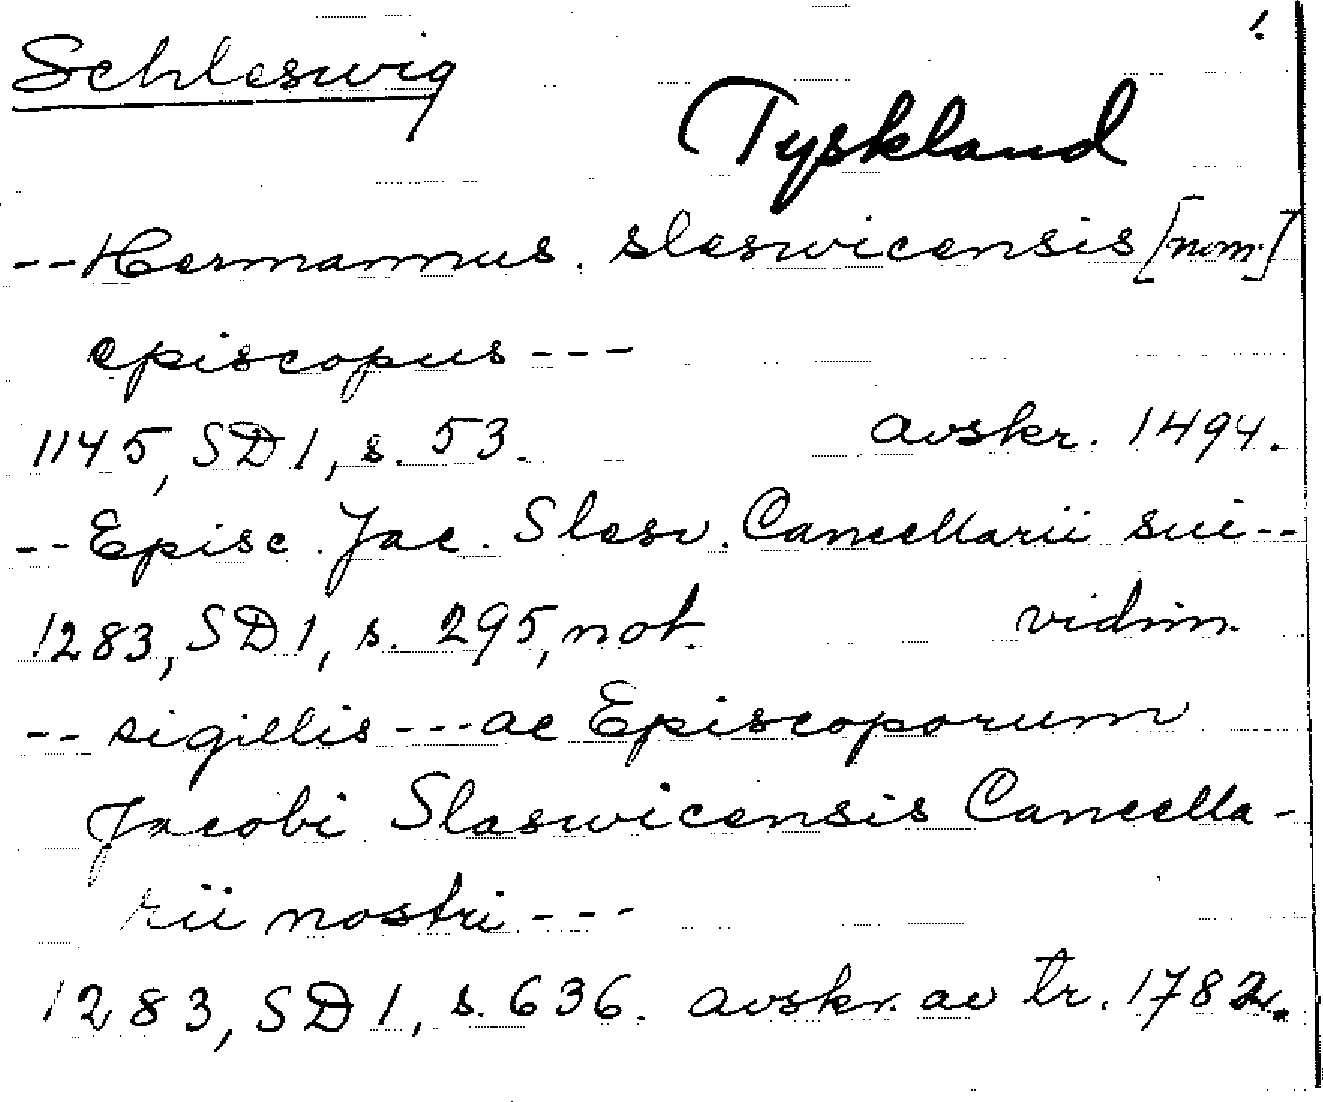 Schleswig
Tyskland
-- Hermannus. sleswicensis [nom.]
episcopus ---
1145, SD 1, s. 53. avskr. 1494.
-- Episc. Jac. Slesv. Cancellarii sui --
1283, SD 1, s. 295, not. vidim.
-- sigillis --- ac Episcoporum
Jacobi Slaswicensis Cancella-
rii nostri ---
1283, SD 1, s. 636. avskr. av tr. 1782.